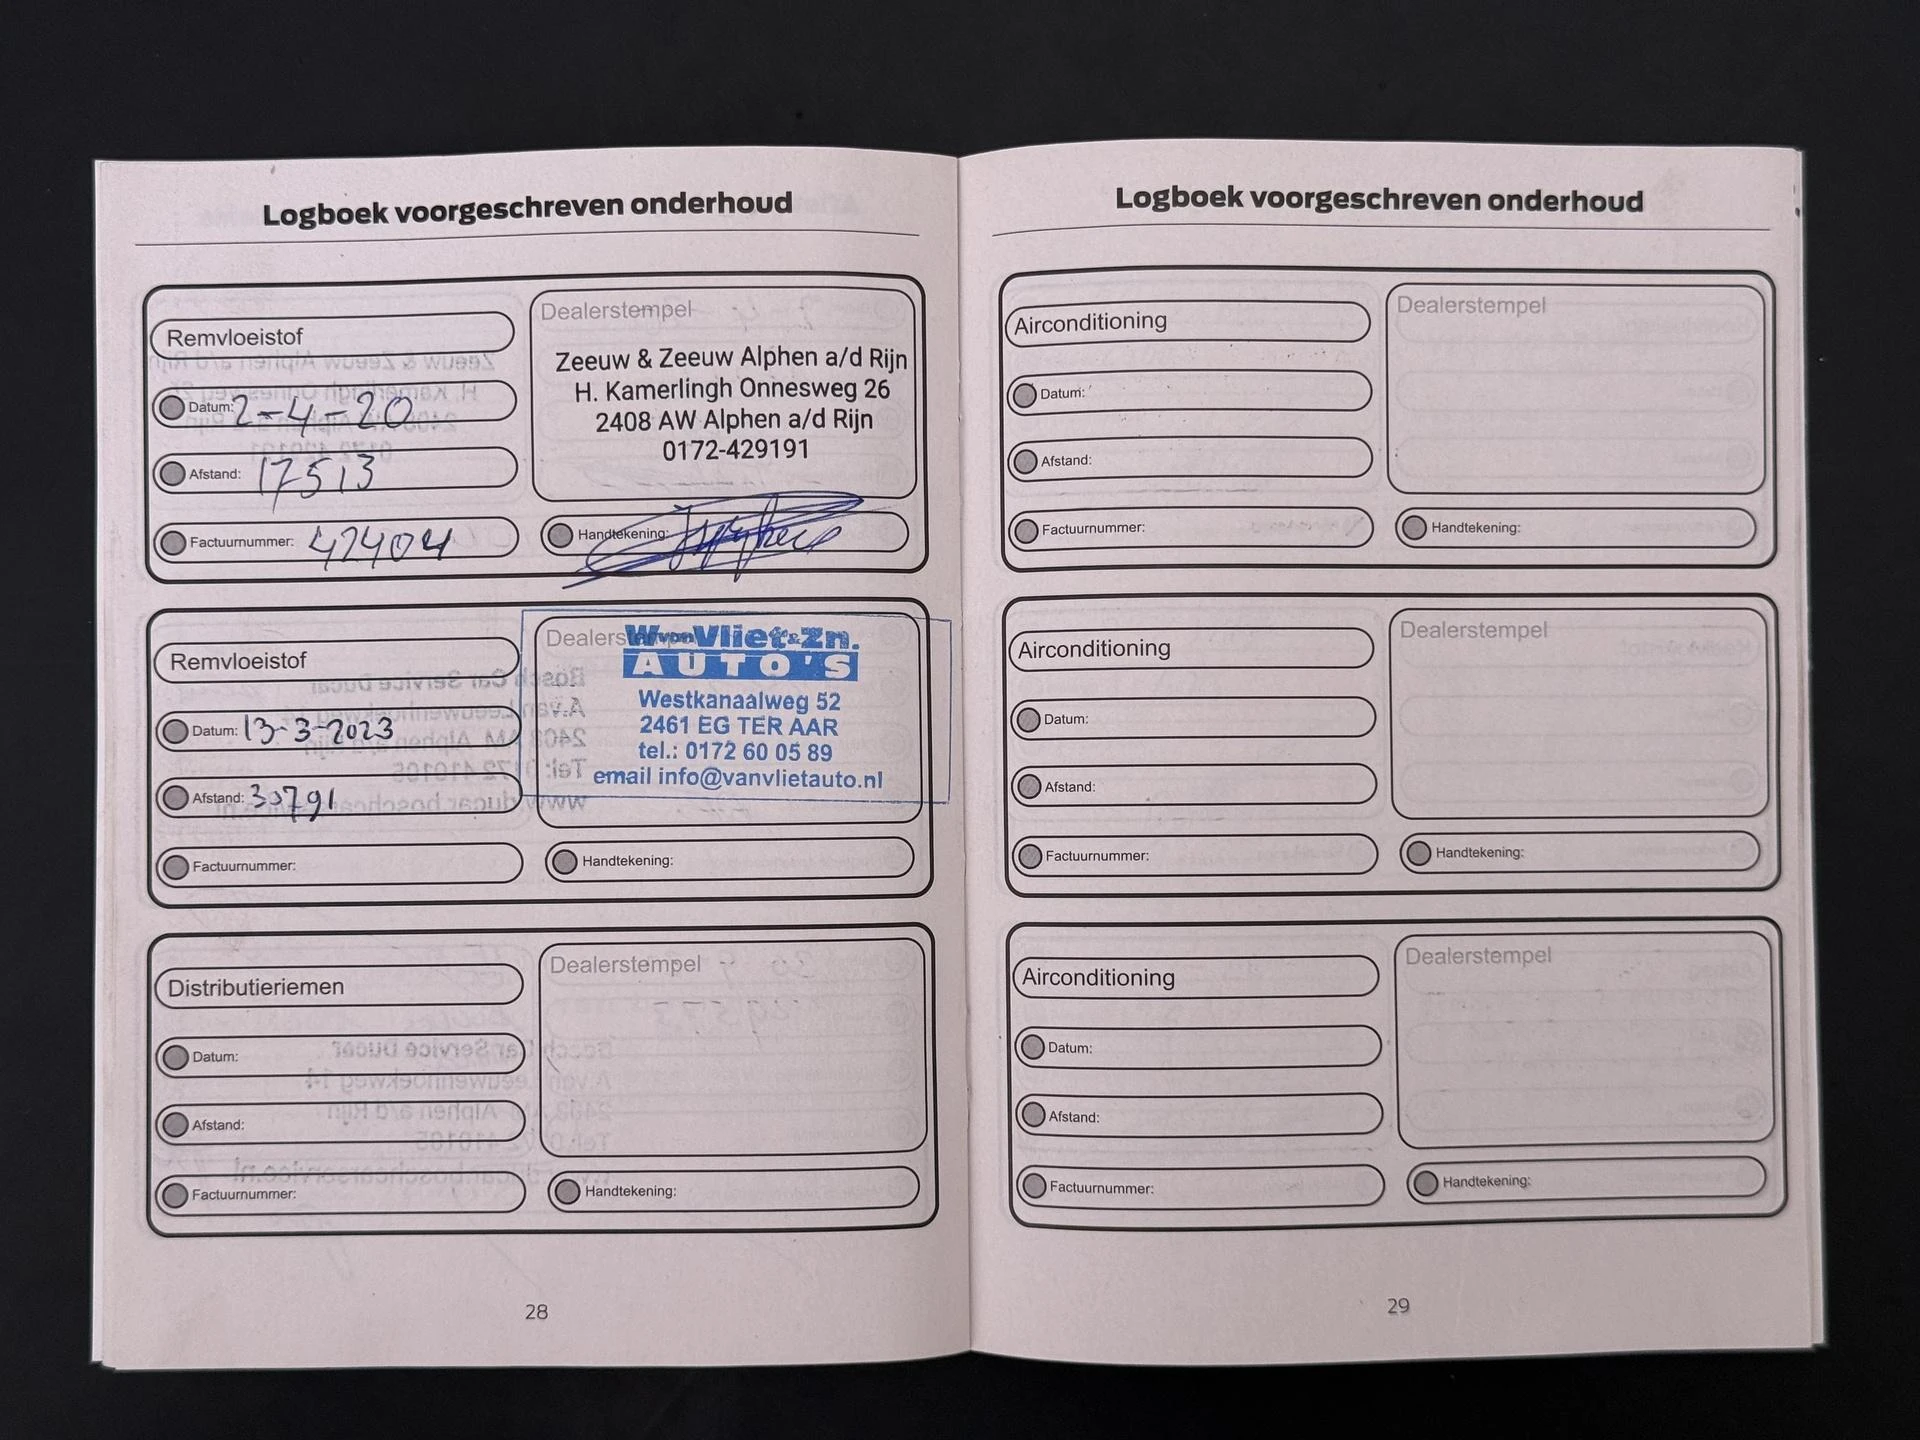 Logboek voorgeschreven onderhoud
Remvloeistof
Datum: 2-4-20
Afstand: 17513
Factuurnummer: 42404
Dealerstempel
Zeeuw & Zeeuw Alphen a/d Rijn
H. Kamerlingh Onnesweg 26
2408 AW Alphen a/d Rijn
0172-429191
Handtekening:
Remvloeistof
Datum: 13-3-2023
Afstand: 30791
Factuurnummer:
Dealerstempel
W. van Vliet & Zn.
AUTO'S
Westkanaalweg 52
2461 EG TER AAR
tel.: 0172 60 05 89
email info@vanvlietauto.nl
Handtekening:
Distributieriemen
Datum:
Afstand:
Factuurnummer:
Dealerstempel
Handtekening:
28
Logboek voorgeschreven onderhoud
Airconditioning
Datum:
Afstand:
Factuurnummer:
Dealerstempel
Handtekening:
Airconditioning
Datum:
Afstand:
Factuurnummer:
Dealerstempel
Handtekening:
Airconditioning
Datum:
Afstand:
Factuurnummer:
Dealerstempel
Handtekening:
29